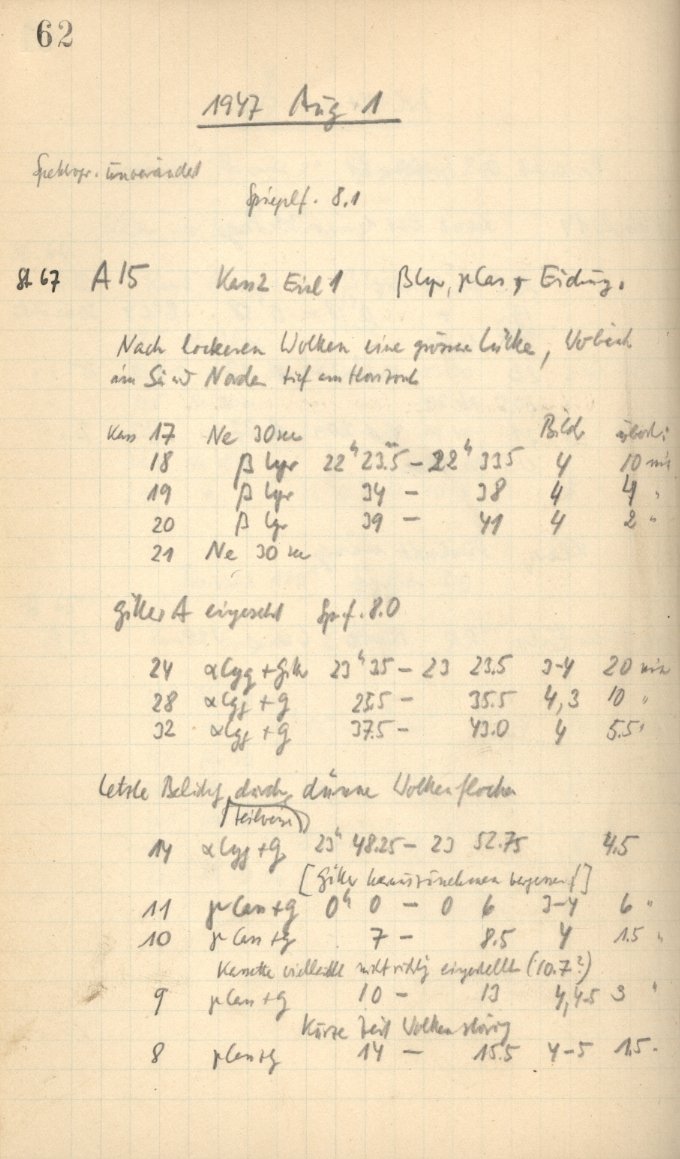 62
1947 Aug 1
Spektogr. unverändert
Spiegelf. 8.1
St 67 A 15 Kass 2 Einl 1 β Lyr, γ Cas, Eichung.
Nach lockeren Wolken eine grosse Lücke,
im S und Norden tief am Horizont
Kass 17 Ne 30 sec Bild
18 β Lyr 22h 23.5m – 22h 33.5 4 10 min
19 β Lyr 34 – 38 4 4 "
20 β Lyr 39 – 41 4 2 "
21 Ne 30 sec
Gitter A eingesetzt Sp.f. 8.0
24 α Cyg + Gitt 23h 3.5 – 23 23.5 3-4 20 min
28 α Cyg + G 25.5 – 35.5 4,3 10 "
32 α Cyg + G 37.5 – 43.0 4 5.5 "
Letzte Belichtg durch dünne Wolkenflocken
(teilweise)
14 α Cyg + G 23h 48.25 – 23 52.75 4.5
[Gitter herauszunehmen vergessen!]
11 γ Cas + g 0h 0 – 0 6 3-4 6 "
10 γ Cas + g 7 – 8.5 4 1.5 "
Kassette vielleicht nicht richtig eingestellt (10.7?)
9 γ Cas + g 10 – 13 4,4-5 3 "
Kurze Zeit Wolken störig
8 γ Cas + g 14 – 15.5 4-5 1.5 "